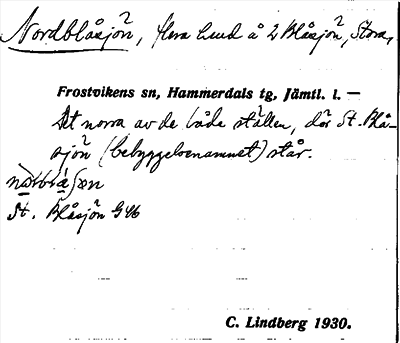 Nordblåsjön, flera hmd å 2 Blåsjön, Stora,
Frostvikens sn, Hammerdals tg, Jämtl. l. —
Det norra av de båda ställen, där St. Blå-
sjön (bebyggelsenamnet) står.
St. Blåsjön G46
C. Lindberg 1930.